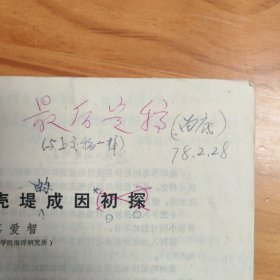 最后定稿(留底)
(与上交稿一样)
78.2.28
的
壳堤成因初探
爱智
学院海洋研究所)